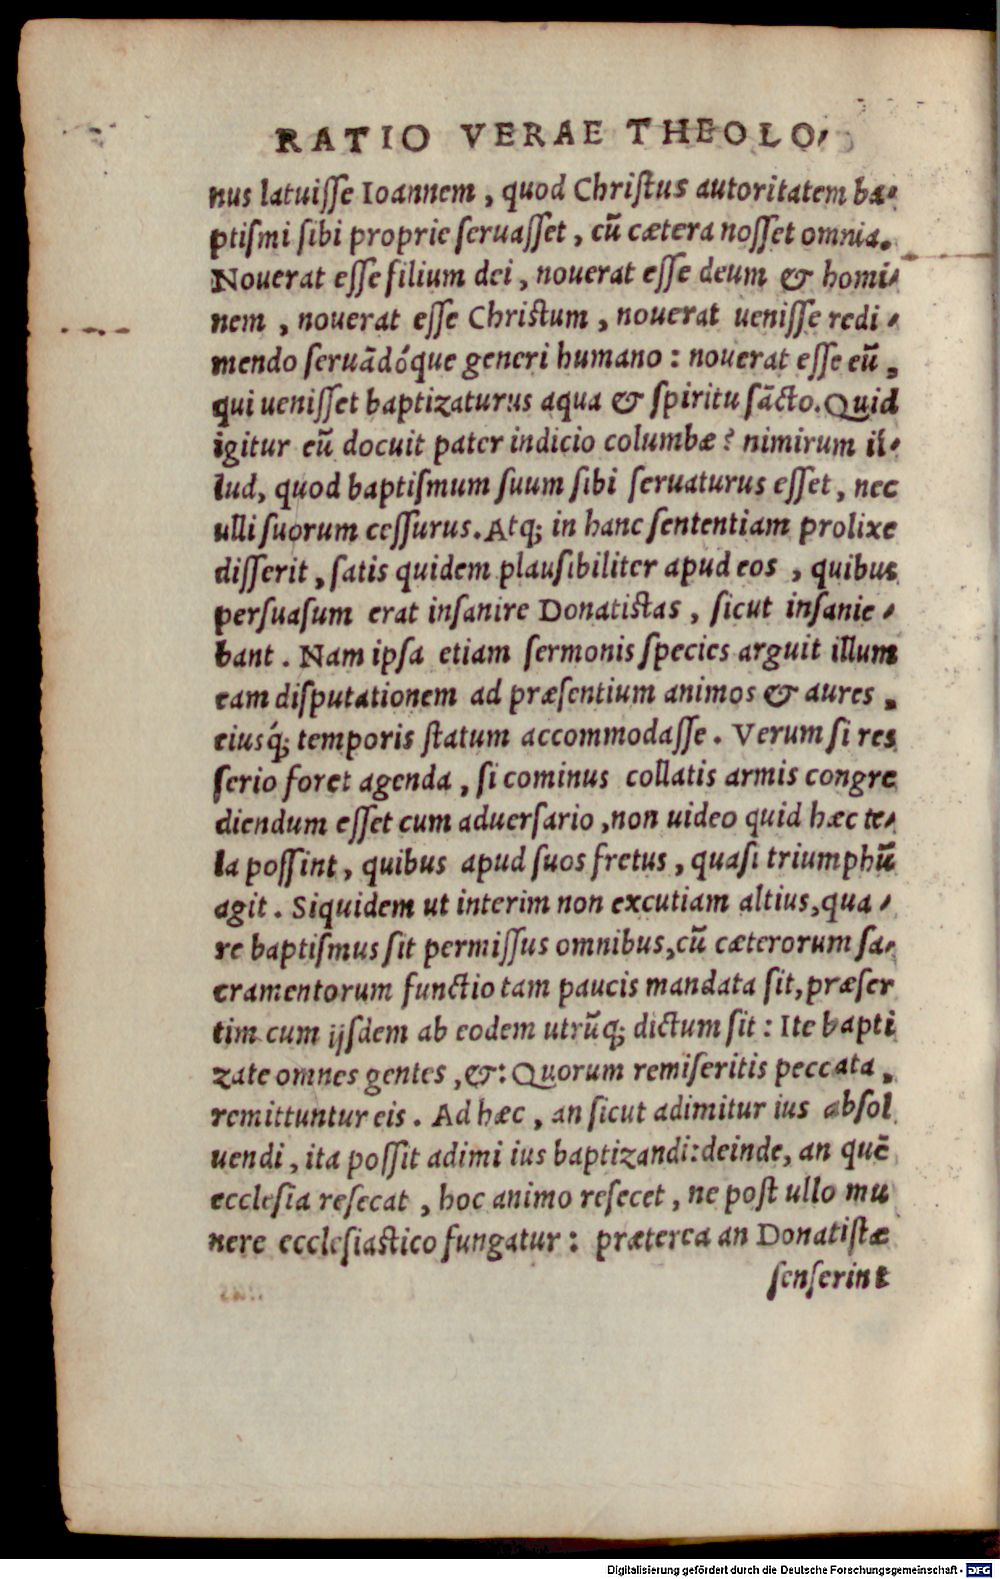 RATIO VERAE THEOLO,
nus latuiſſe Ioannem, quod Chriſtus autoritatem ba-
ptiſmi ſibi proprie ſeruaſſet, cū cætera noſſet omnia.
Nouerat eſſe filium dei, nouerat eſſe deum & homi-
nem, nouerat eſſe Chriſtum, nouerat ueniſſe redi-
mendo ſeruādóque generi humano: nouerat eſſe eū,
qui ueniſſet baptizaturus aqua & ſpiritu ſācto. Quid
igitur eū docuit pater indicio columbæ? nimirum il-
lud, quod baptiſmum ſuum ſibi ſeruaturus eſſet, nec
ulli ſuorum ceſſurus. Atq; in hanc ſententiam prolixe
diſſerit, ſatis quidem plauſibiliter apud eos, quibus
perſuaſum erat inſanire Donatiſtas, ſicut inſanie-
bant. Nam ipſa etiam ſermonis ſpecies arguit illum
eam diſputationem ad præſentium animos & aures,
eiusq́; temporis ſtatum accommodaſſe. Verum ſi res
ſerio foret agenda, ſi cominus collatis armis congre
diendum eſſet cum aduerſario, non uideo quid hæc te-
la poſſint, quibus apud ſuos fretus, quaſi triumphū
agit. Siquidem ut interim non excutiam altius, qua-
re baptiſmus ſit permiſſus omnibus, cū cæterorum ſa-
cramentorum functio tam paucis mandata ſit, præſer
tim cum ijſdem ab eodem utrūq; dictum ſit: Ite bapti
zate omnes gentes, &: Quorum remiſeritis peccata,
remittuntur eis. Ad hæc, an ſicut adimitur ius abſol
uendi, ita poſſit adimi ius baptizandi: deinde, an quē
eccleſia reſecat, hoc animo reſecet, ne poſt ullo mu
nere eccleſiaſtico fungatur: præterea an Donatiſtæ
ſenſerint
Digitalisierung gefördert durch die Deutsche Forschungsgemeinschaft - DFG